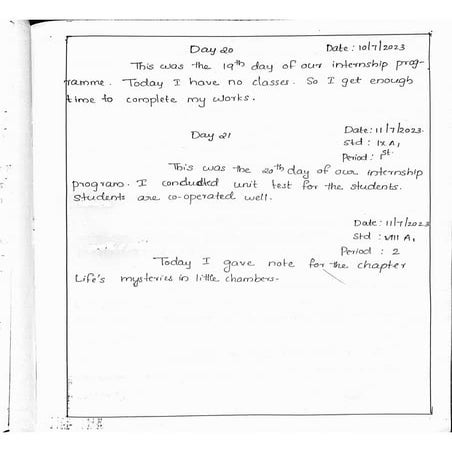 Day 20 Date: 10/7/2023
This was the 19th day of our internship prog-
ramme. Today I have no classes. So I get enough
time to complete my works.
Day 21 Date: 11/7/2023.
Std : IX A,
Period : 1st.
This was the 20th day of our internship
program. I conducted unit test for the students.
Students are co-operated well.
Date: 11/7/2023
Std : VIII A,
Period : 2
Today I gave note for the chapter
Life's mysteries in little chambers.